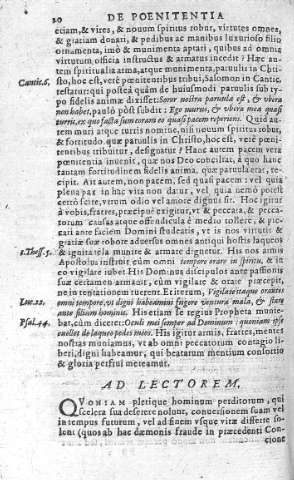 20 DE POENITENTIA
etiam, & vires, & nouum spiritus robur, virtutes omnes,
& gratiam donari, & pedibus ac manibus luxurioso filio
ornamenta, imò & munimenta aptari, quibus ad omnia
virtutum officia instructus & armatus incedit? Hæc au-
tem spiritualia arma, atque munimenta, paruulis in Chri-
Cantic. 8. sto, hoc est, verè pœnitentibus tribui, Salomon in Cantic.
testatur: qui posteà quàm de huiusmodi paruulis sub ty-
po fidelis animæ dixisset: Soror nostra paruula est, & vbera
non habet, paulò pòst subdit: Ego murus, & vbera mea quasi
turris, ex quo facta sum coram eo quasi pacem reperiens. Quid au-
tem muri atque turris nomine, nisi nouum spiritus robur,
& fortitudo, quæ paruulis in Christo, hoc est, verè pœni-
tentibus tribuitur, designatur? Hanc autem pacem vera
pœnitentia inuenit, quæ nos Deo conciliat, à quo hanc
tantam fortitudinem fidelis anima, quæ paruula erat, re-
cipit. Ait autem, non pacem, sed quasi pacem: vel quia
plena pax in hac vita non datur, vel quia nemo potest
certò scire, vtrum odio vel amore dignus sit. Hoc igitur
à vobis, fratres, præcipuè exigitur, vt & peccata, & pecca-
torum causas atque offendicula è medio tollere, & pla-
cari ante faciem Domini studeatis, vt is nos virtutis &
gratiæ suæ robore aduersus omnes antiqui hostis laqueos
1. Thess. 5. & ignita tela munire & armare dignetur. His nos armis
Apostolus instruit cùm omni tempore orare in spiritu, & in
eo vigilare iubet. His Dominus discipulos ante passionis
suæ certamen armauit, cùm vigilare & orare præcepit,
ne in tentationem ruerent. Et iterum, Vigilate itaque orantes
Luc. 22. omni tempore, vt digni habeamini fugere ventura mala, & stare
ante filium hominis. His etiam se regius Propheta munie-
Psal. 44. bat, cùm diceret: Oculi mei semper ad Dominum: quoniam ipse
euellet de laqueo pedes meos. His igitur armis, fratres, mentes
nostras muniamus, vt ab omni peccatorum contagio li-
beri, digni habeamur, qui beatarum mentium consortio
& gloria perfrui mereamur.
AD LECTOREM.
QVONIAM plerique hominum perditorum, qui
scelera sua deserere nolunt, conuersionem suam vel
in tempus futurum, vel ad finem vsque vitæ differre so-
lent (quos ab hac dæmonis fraude in præcedenti Con-
cione